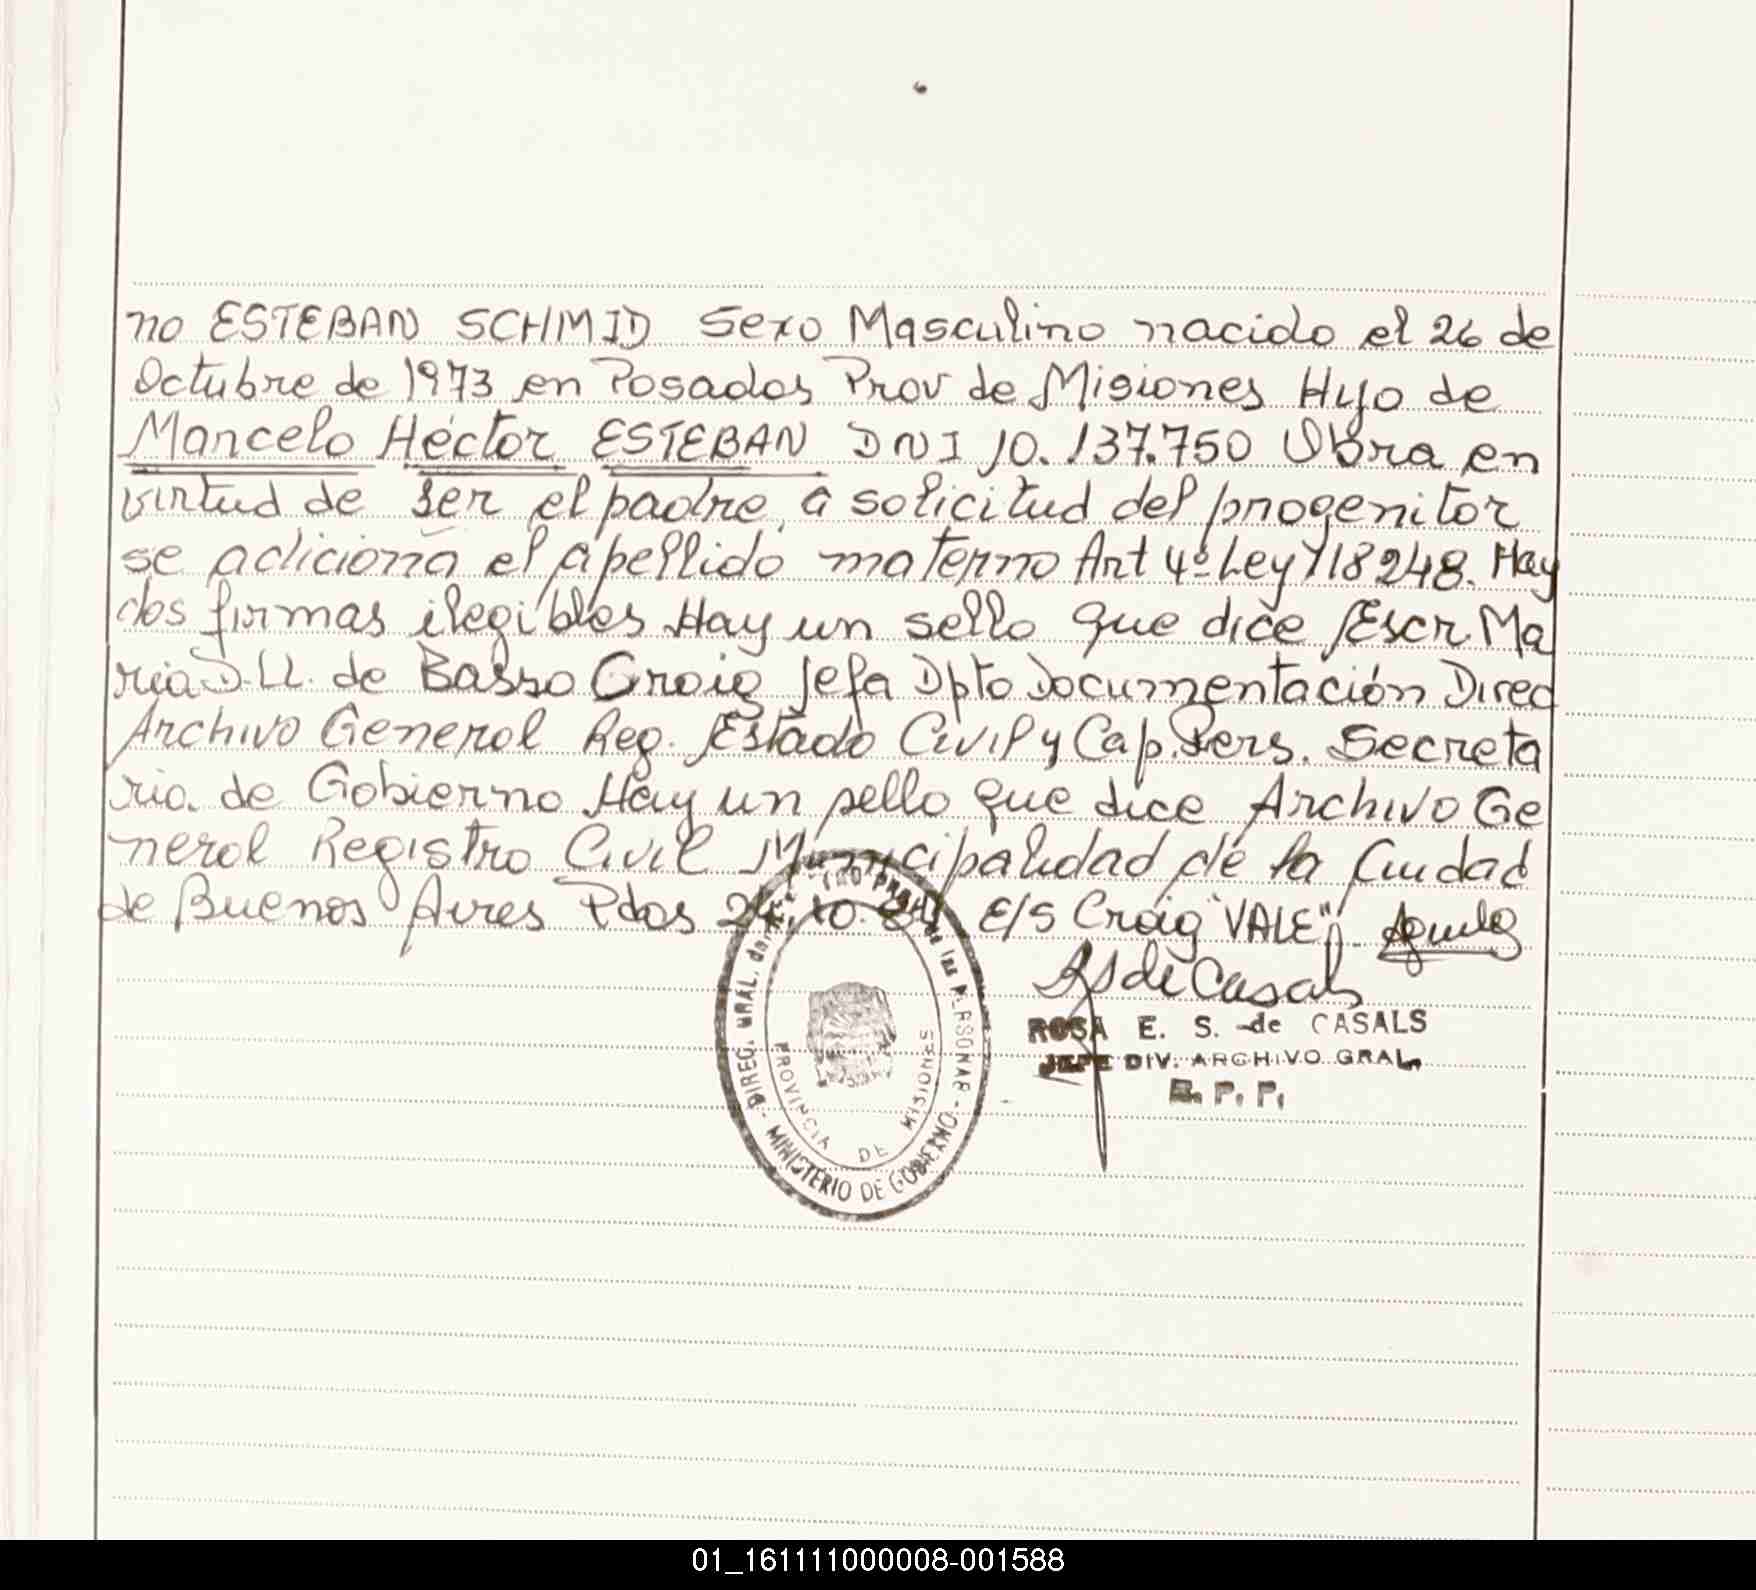 no ESTEBAN SCHMID Sexo Masculino nacido el 26 de
Octubre de 1973 en Posadas Prov de Misiones Hijo de
Marcelo Héctor ESTEBAN DNI 10.137.750 Obra en
virtud de ser el padre, a solicitud del progenitor
se adiciona el apellido materno Art 4º Ley 18248. Hay
dos firmas ilegibles Hay un sello que dice Escr. Ma
ria D. Ll. de Basso Croig Jefa Dpto Documentación Direc
Archivo General Reg. Estado Civil y Cap. Pers. Secreta
ria de Gobierno Hay un sello que dice Archivo Ge
neral Registro Civil Municipalidad de la Ciudad
de Buenos Aires Pdas 10 E/S Craig "VALE"
RS de Casals
ROSA E. S. de CASALS
JEFE DIV. ARCHIVO GRAL.
R. P. P.
DIREC. GRAL. de las PERSONAS - MINISTERIO DE GOBIERNO -
PROVINCIA DE MISIONES
01_161111000008-001588